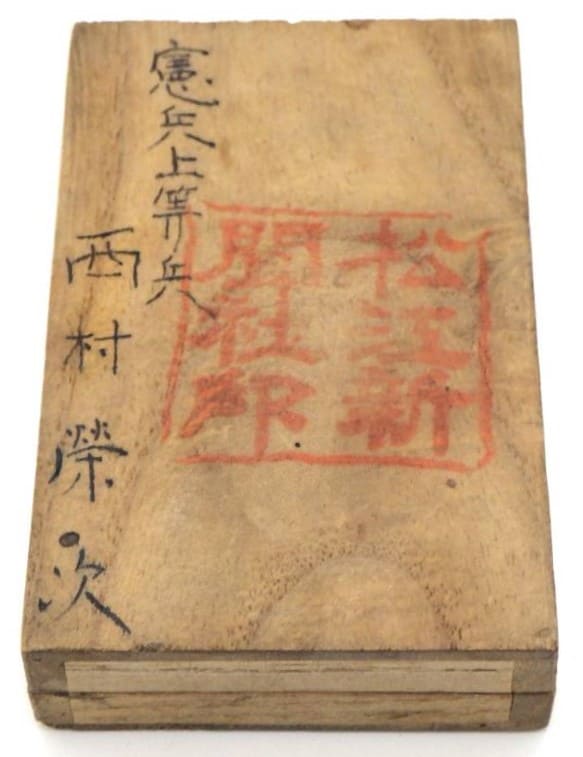 松江新
聞社印
憲兵上等兵
西村榮次